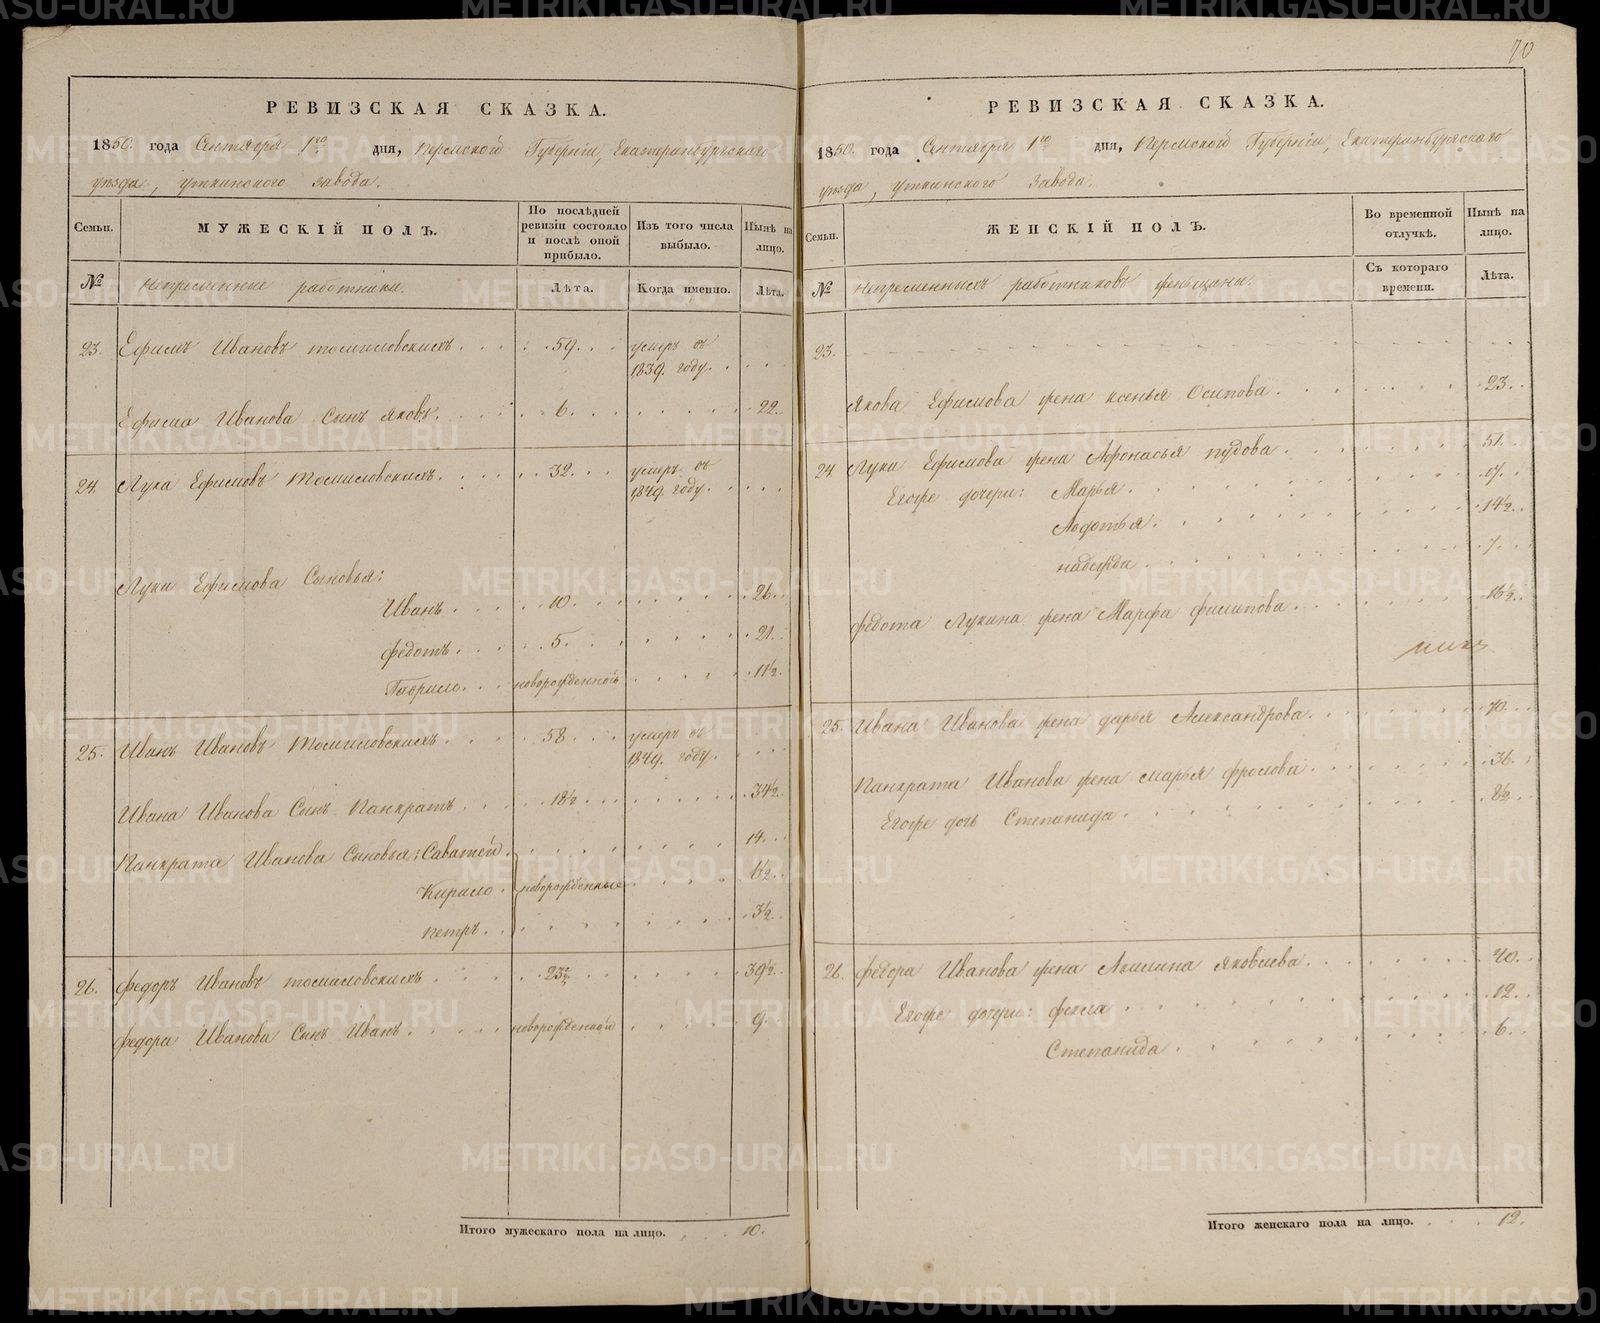 70
РЕВИЗСКАЯ СКАЗКА.
1850. года Сентября 1го дня, Пермской Губернiи, Екатеринбургскаго
уѣзда, уткинского завода.
Семьи.
МУЖЕСКІЙ ПОЛЪ.
По послѣдней ревизіи состояло и послѣ оной прибыло.
Изъ того числа выбыло.
Нынѣ на лицо.
№
Непременные работники.
Лѣта.
Когда именно.
Лѣта.
23. Ефимъ Ивановъ томиловскихъ . . . 59. . . умеръ въ 1839. году. . . .
Ефима Иванова Сынъ яковъ. . . . 6. . . . 22.
24. Лука Ефимовъ Томиловскихъ. . . . 32. . . умеръ въ 1849. году. . . .
Луки Ефимова Сыновья:
Иванъ . . . . 10. . . . 26.
федотъ. . . . 5. . . . 21.
Гаврило. . . новорожденной . . . . 11½.
25. Иванъ Ивановъ Томиловскихъ. . . . 58. . . умеръ въ 1849. году. . . .
Ивана Иванова Сынъ Панкратъ . . . . 18½ . . . . 34½.
Панкрата Иванова Сыновья: Саватей . . . . 14.
Кирило . новорожденные . . . .
петръ . . . . 3½.
26. федоръ Ивановъ томиловскихъ . . . . 23½ . . . . 39½.
федора Иванова Сынъ Иванъ . . . . новорожденной . . . . 9.
Итого мужескаго пола на лицо. . . . 10.
РЕВИЗСКАЯ СКАЗКА.
1850. года Сентября 1го дня, Пермской Губернiи, Екатеринбургскаго
уѣзда, уткинского завода.
Семьи.
ЖЕНСКІЙ ПОЛЪ.
Во временной отлучкѣ.
Нынѣ на лицо.
№
непременныхъ работниковъ женщины.
Съ котораго времени.
Лѣта.
23.
Якова Ефимова жена ксенья Осипова . . . . 23.
24. Луки Ефимова жена Афонасья пудова . . . . 51.
Егоже дочери: Марья . . . . 17.
Авдотья . . . . 14½.
надежда . . . . 7.
федота Лукина жена Марфа филипова . . . . 16½.
25. Ивана Иванова жена дарья Александрова . . . . 70.
Панкрата Иванова жена марья фролова . . . . 36.
Егоже дочь Степанида . . . . 8½.
26. федора Иванова жена Акилина яковлева . . . . 40.
Егоже дочери: фекла . . . . 12.
Степанида . . . . 6.
Итого женскаго пола на лицо. . . . 12.
METRIKI.GASO-URAL.RU